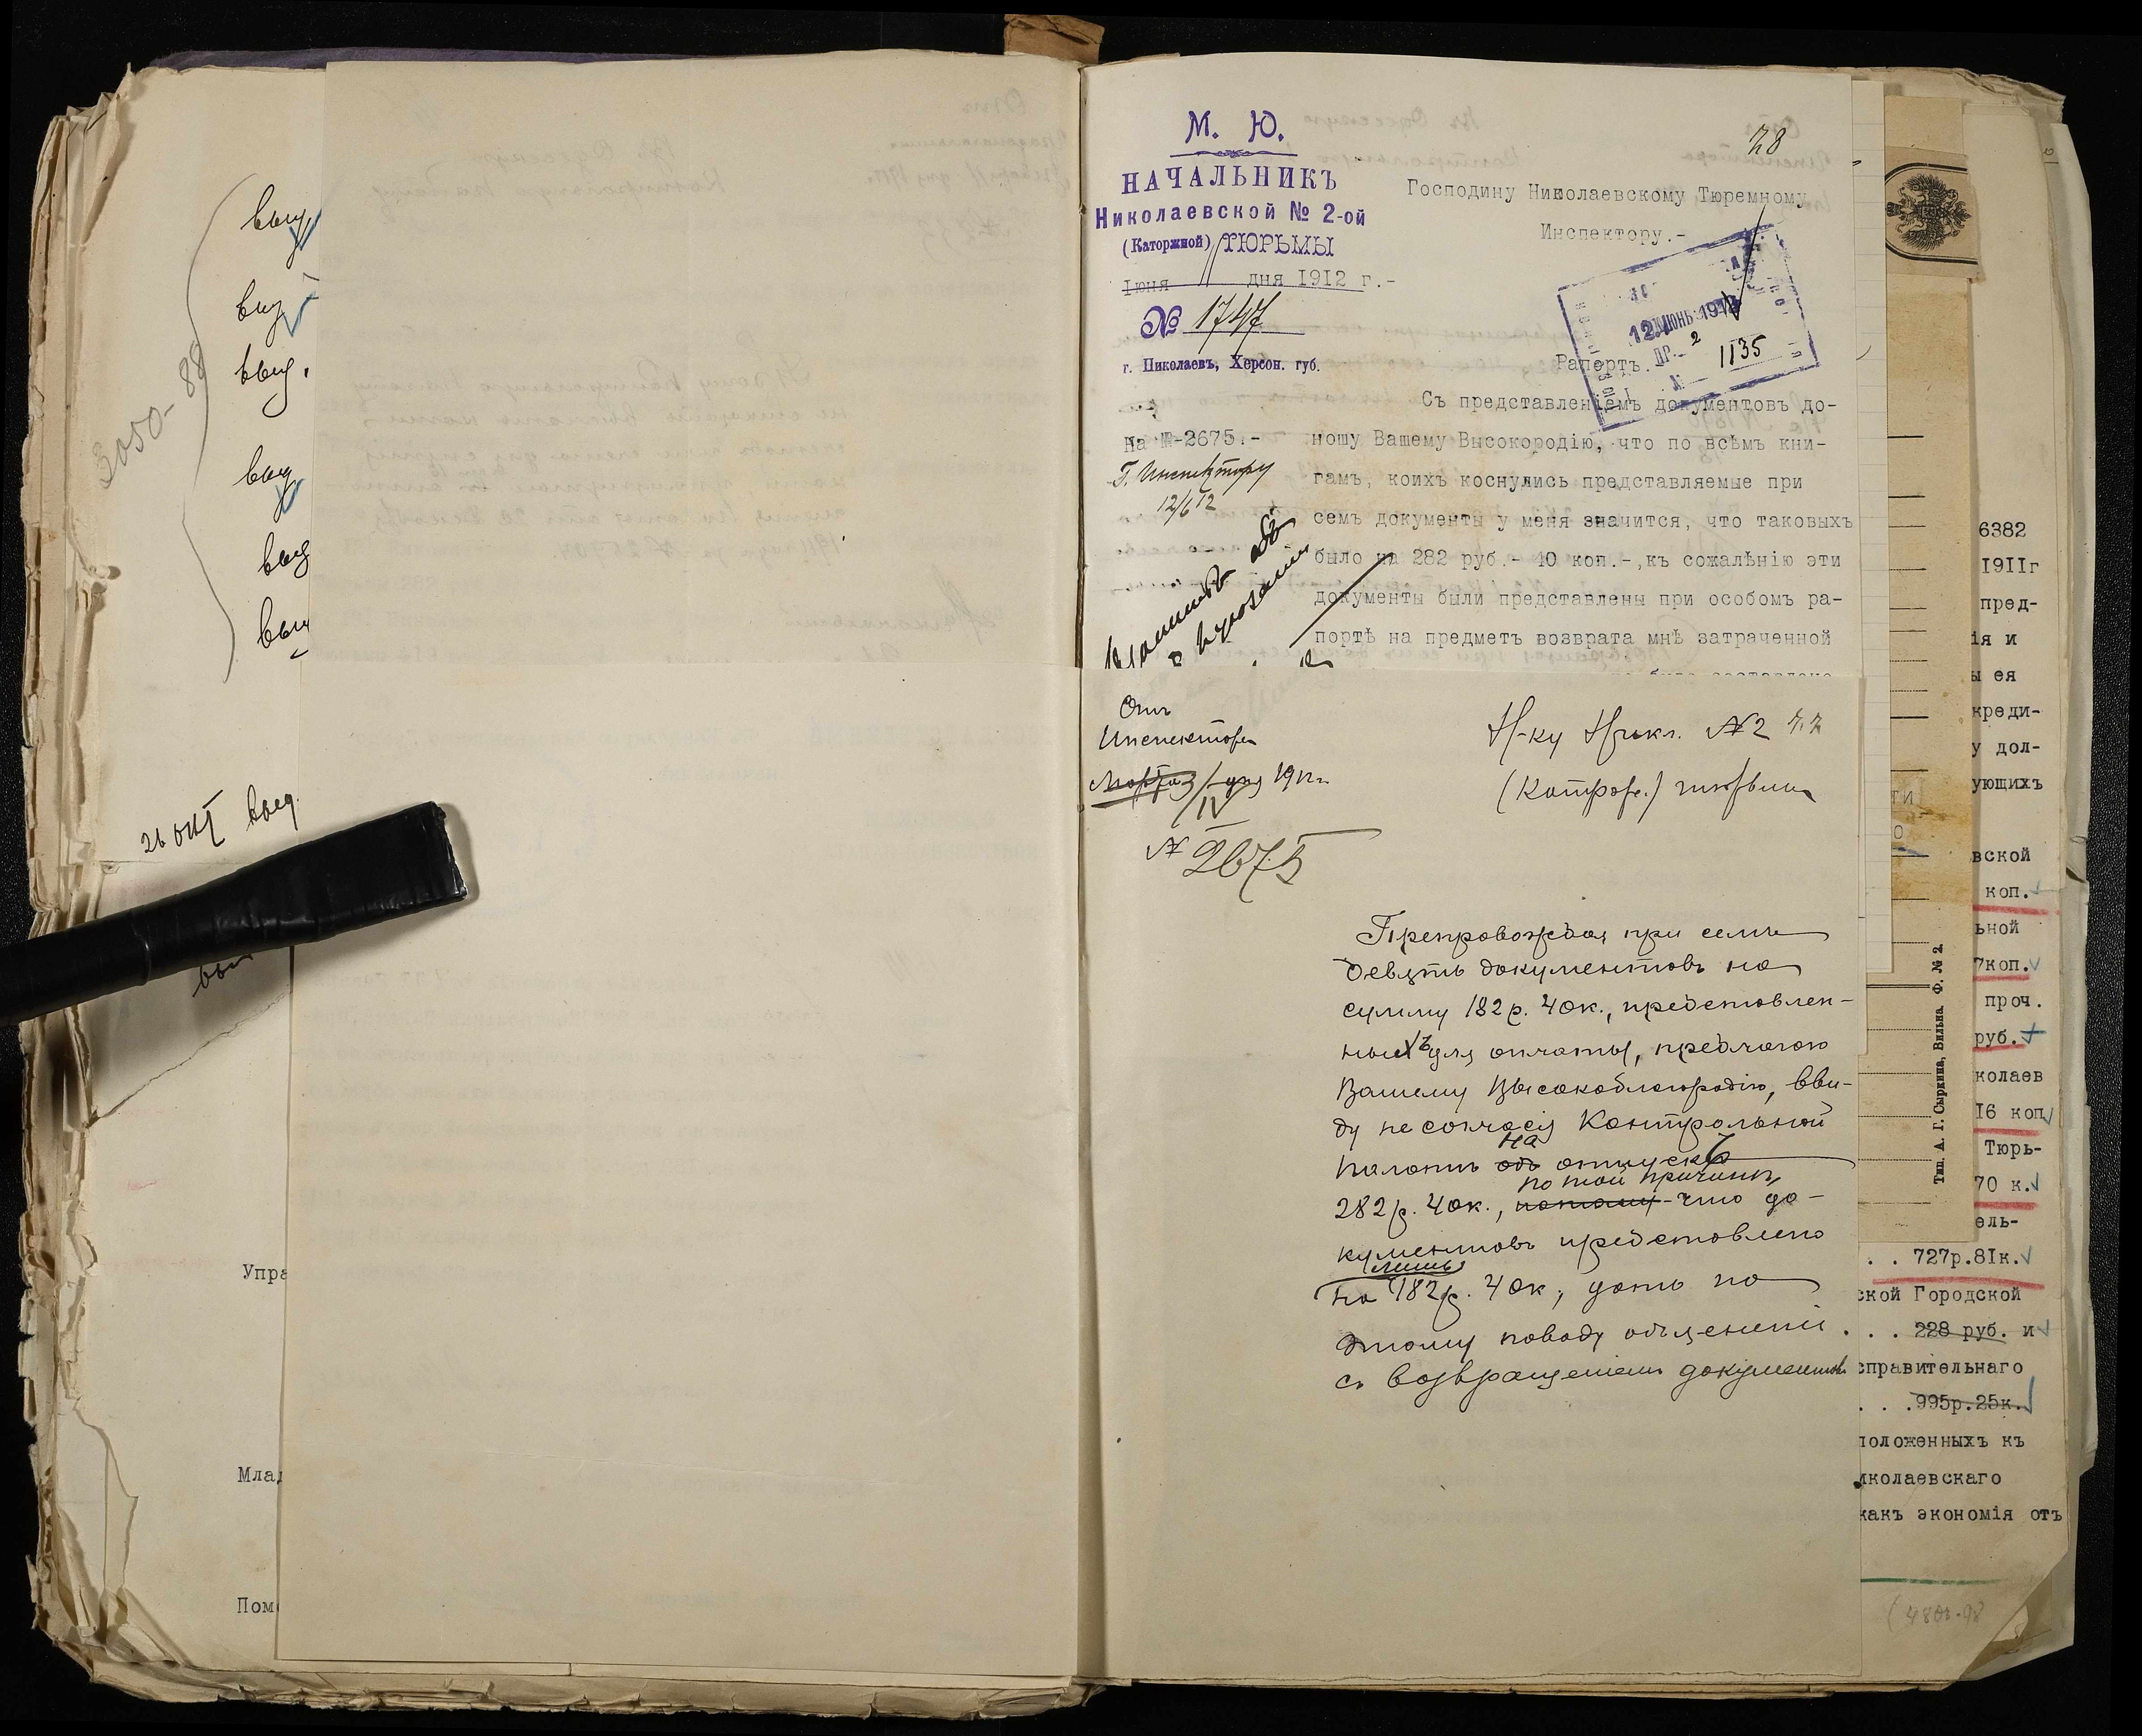 выд
выд
выд.
выд
выд
выд
3050-88
26 окт выд
Упра
Млад
Помо
М. Ю.
НАЧАЛЬНИКЪ
Николаевской № 2-ой
(Каторжной) ТЮРЬМЫ
Іюня 11 дня 1912 г.-
№ 1747
г. Николаевъ, Херсон. губ.
На №-2675.-
Г. Инспектору
12/6 12
78
Господину Николаевскому Тюремному
Инспектору.-
12 ІЮНЬ 1912
1135
Рапортъ.
Съ представленіемъ документовъ до-
ношу Вашему Высокородію, что по всѣмъ кни-
гамъ, коихъ коснулись представляемые при
семъ документы у меня значится, что таковыхъ
было на 282 руб.- 40 коп.-,къ сожалѣнію эти
документы были представлены при особомъ ра-
портѣ на предметъ возврата мнѣ затраченной
Отъ
Инспектора
Марта 3/IV дня 1912 г.
№ 2675
Н-ку Никл. №2
(Каторж.) тюрьмы
Препровождая при семъ
девять документовъ на
сумму 182 р. 40к., представлен-
ныхъ для оплаты, предлагаю
Вашему Высокоблагородію, вви-
ду несогласія Контрольной
Палаты объ на отпускъ
282 р. 40к., потому по той причинѣ что до-
кументовъ представлено
лишь на 182 р. 40к., дать по
этому поводу объясненіе
съ возвращеніемъ документовъ
Тип. А. Г. Сыркина, Вильна. Ф. № 2.
6382
1911г
пред-
ія и
ы ея
креди-
у дол-
ующихъ
вской
коп.
ьной
7коп.
проч.
руб.
колаев
16 коп
Тюрь-
70 к.
ель-
. . 727р.81к.
ской Городской
. . . 228 руб. и
справительнаго
. . .995р.25к.
положенныхъ къ
иколаевскаго
какъ экономія отъ